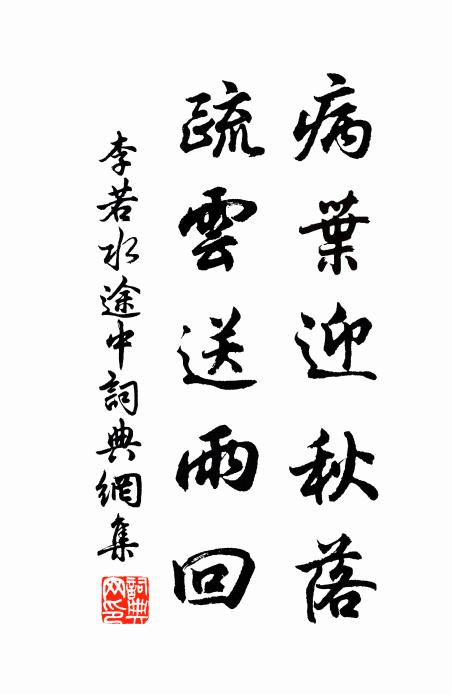 病葉迎秋落
疏雲送雨回
李若水途中詞典網集
詞典網印